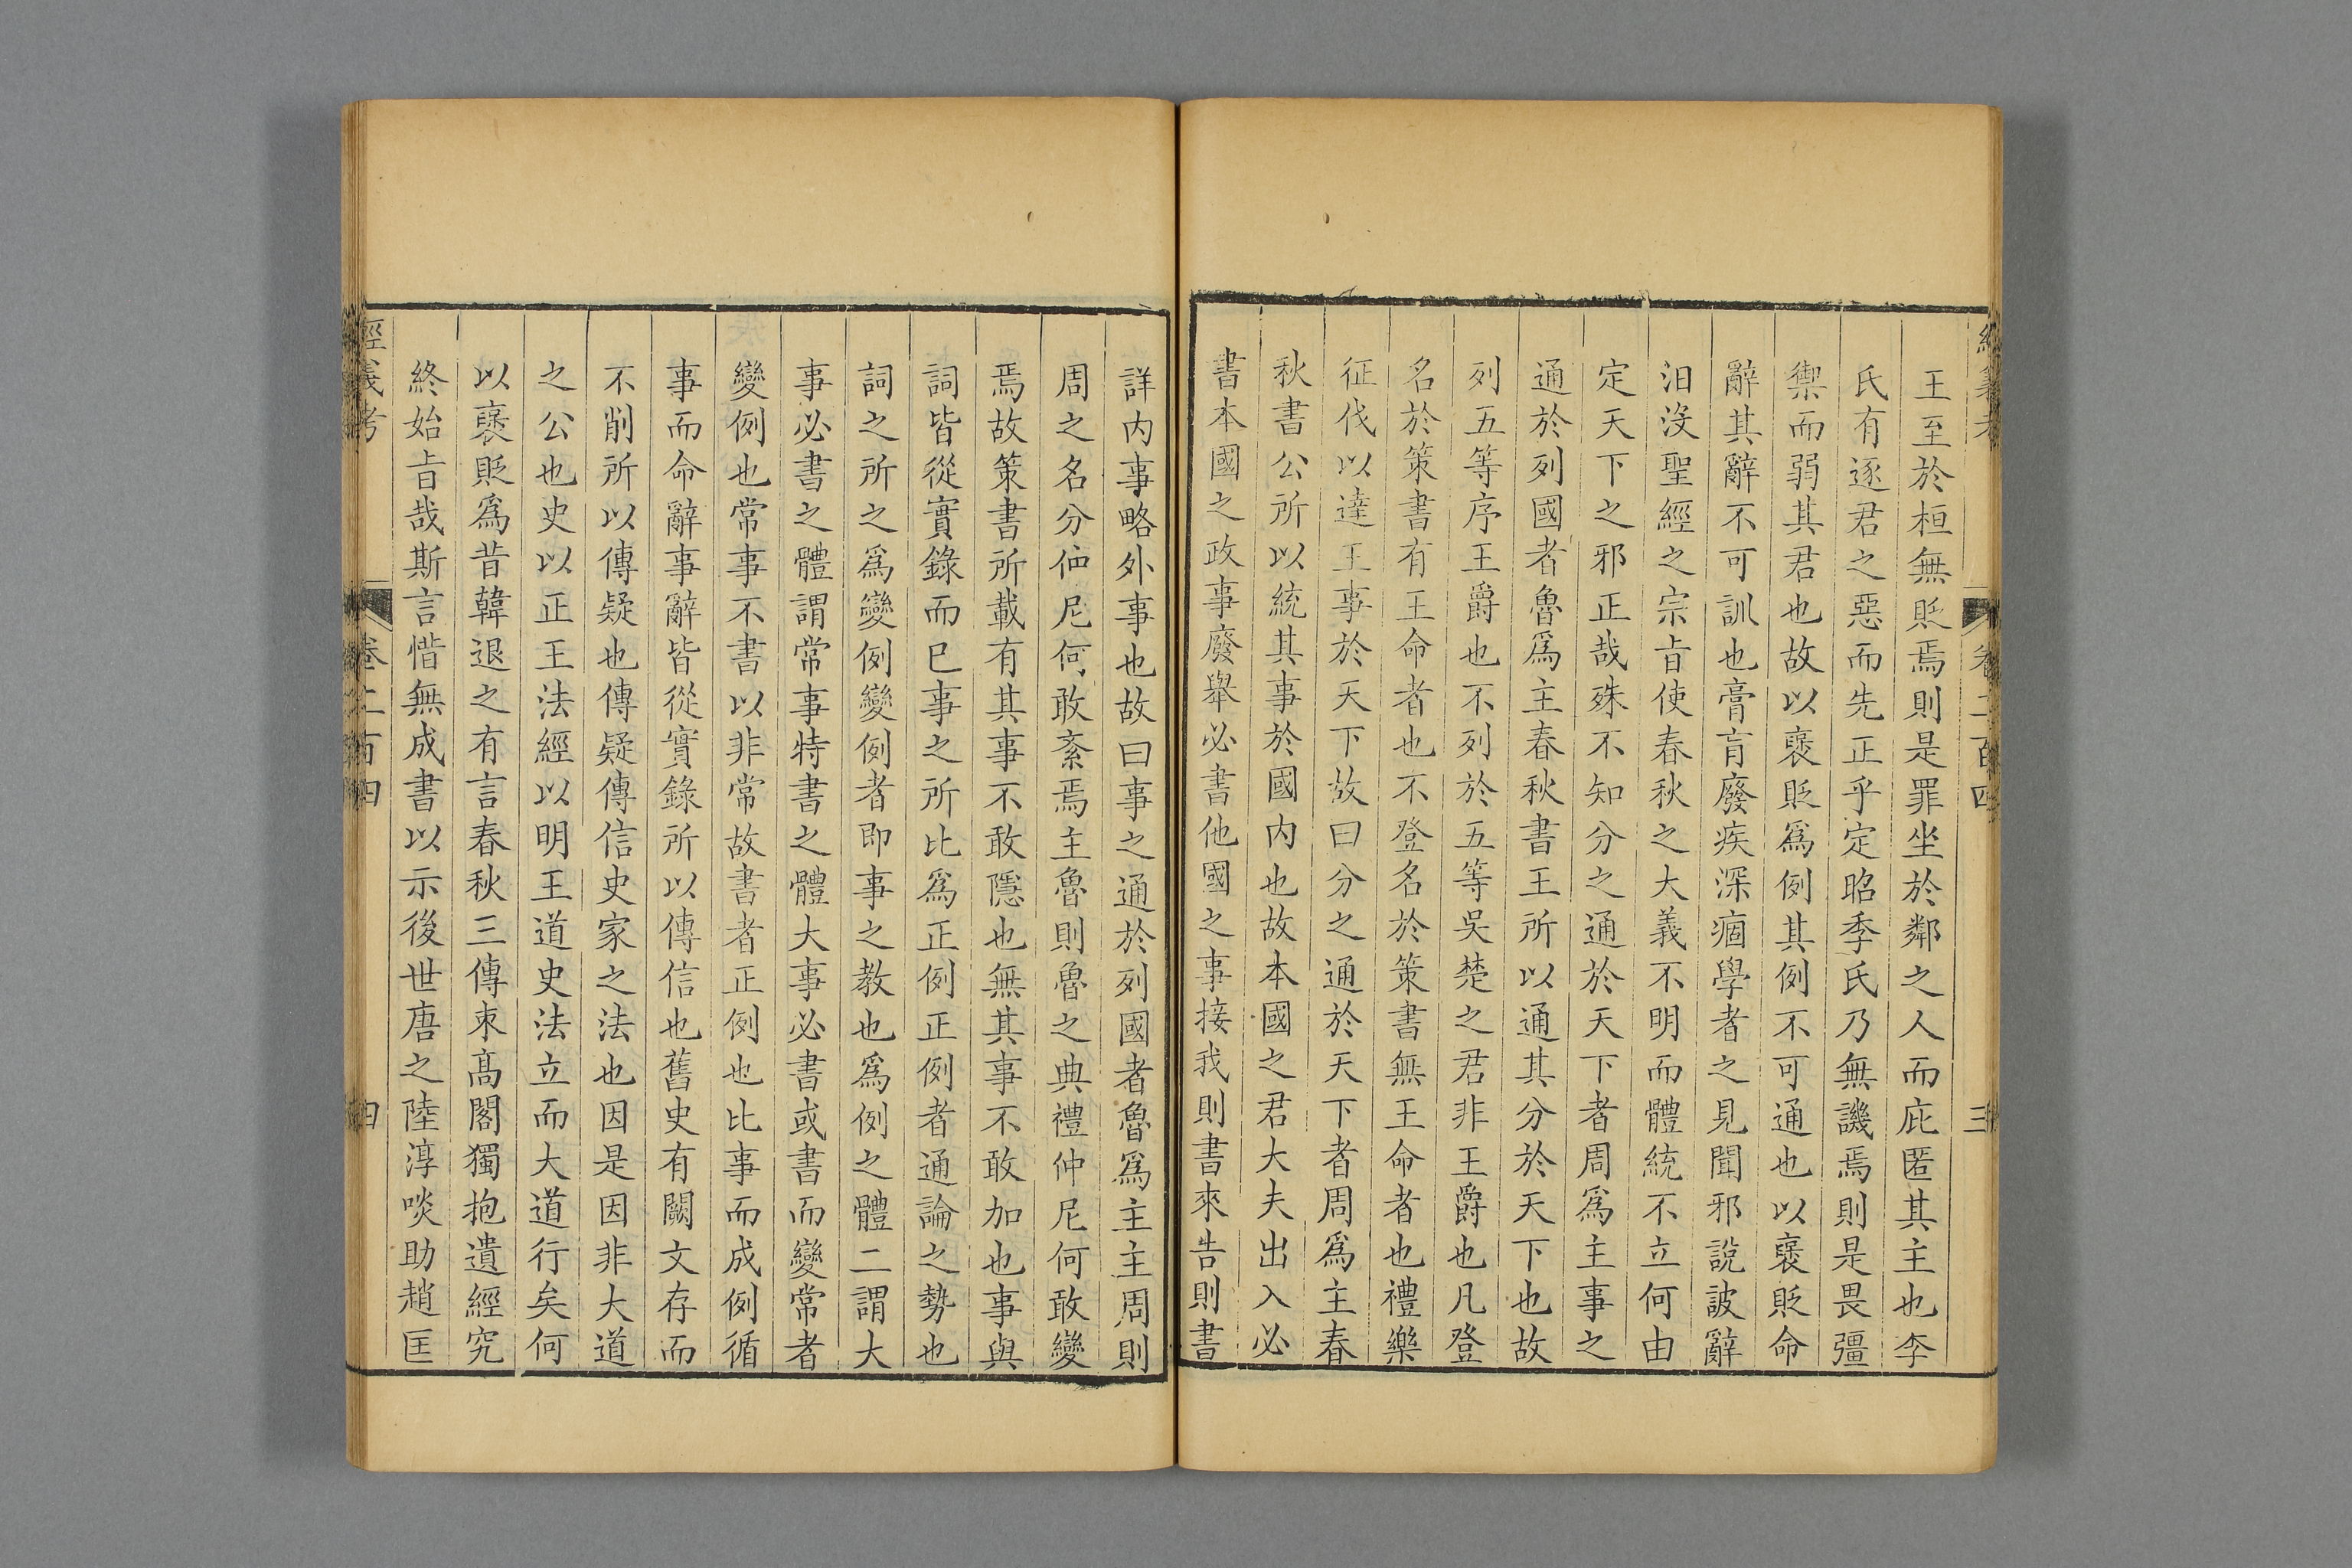 經義考 卷二百四 三
王至於桓無貶焉則是罪坐於鄰之人而庇匿其主也李
氏有逐君之惡而先正乎定昭季氏乃無譏焉則是畏彊
禦而弱其君也故以襃貶爲例其例不可通也以襃貶命
辭其辭不可訓也膏肓廢疾深痼學者之見聞邪說詖辭
汩沒聖經之宗旨使春秋之大義不明而體統不立何由
定天下之邪正哉殊不知分之通於天下者周爲主事之
通於列國者魯爲主春秋書王所以通其分於天下也故
列五等序王爵也不列於五等吳楚之君非王爵也凡登
名於策書有王命者也不登名於策書無王命者也禮樂
征伐以達王事於天下故曰分之通於天下者周爲主春
秋書公所以統其事於國內也故本國之君大夫出入必
書本國之政事廢舉必書他國之事接我則書來告則書
詳內事略外事也故曰事之通於列國者魯爲主主周則
周之名分仲尼何敢紊焉主魯則魯之典禮仲尼何敢變
焉故策書所載有其事不敢隱也無其事不敢加也事與
詞皆從實錄而已事之所比爲正例正例者通論之勢也
詞之所之爲變例變例者即事之教也爲例之體二謂大
事必書之體謂常事特書之體大事必書或書而變常者
變例也常事不書以非常故書者正例也比事而成例循
事而命辭事辭皆從實錄所以傳信也舊史有闕文存而
不削所以傳疑也傳疑傳信史家之法也因是因非大道
之公也史以正王法經以明王道史法立而大道行矣何
以襃貶爲昔韓退之有言春秋三傳束高閣獨抱遺經究
終始旨哉斯言惜無成書以示後世唐之陸淳啖助趙匡
經義考 卷二百四 四